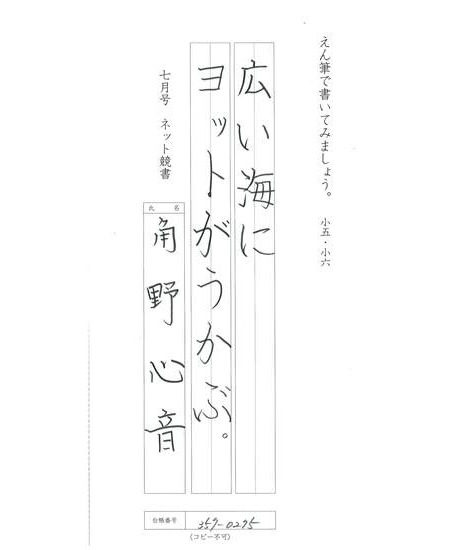 えん筆で書いてみましょう。 小五・小六
広い海に
ヨットがうかぶ。
七月号 ネット競書
氏名
角野心音
台帳番号 359-0295
(コピー不可)